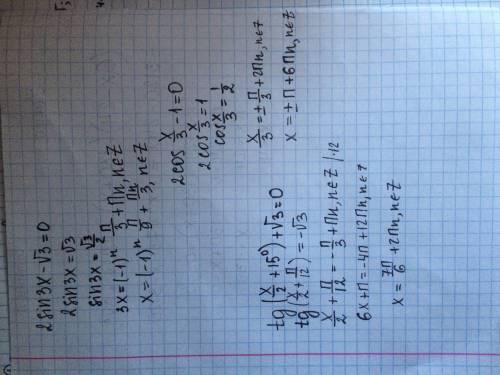 2sin3x-√3=0
2sin3x=√3
sin3x=√3/2
3x=(-1)ⁿ π/3+πn, n∈Z
x=(-1)ⁿ π/9+πn/3, n∈Z
2cos x/3 -1=0
2cos x/3=1
cos x/3=1/2
x/3=±π/3+2πn, n∈Z
x=±π+6πn, n∈Z
tg(x/2+15°)+√3=0
tg(x/2+π/12)=-√3
x/2+π/12=-π/3+πn, n∈Z |·12
6x+π=-4π+12πn, n∈Z
x=7π/6+2πn, n∈Z